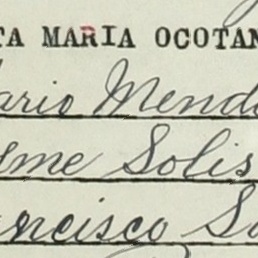 TA MARIA OCOTAN
ario Mendo
me Solis
ancisco S